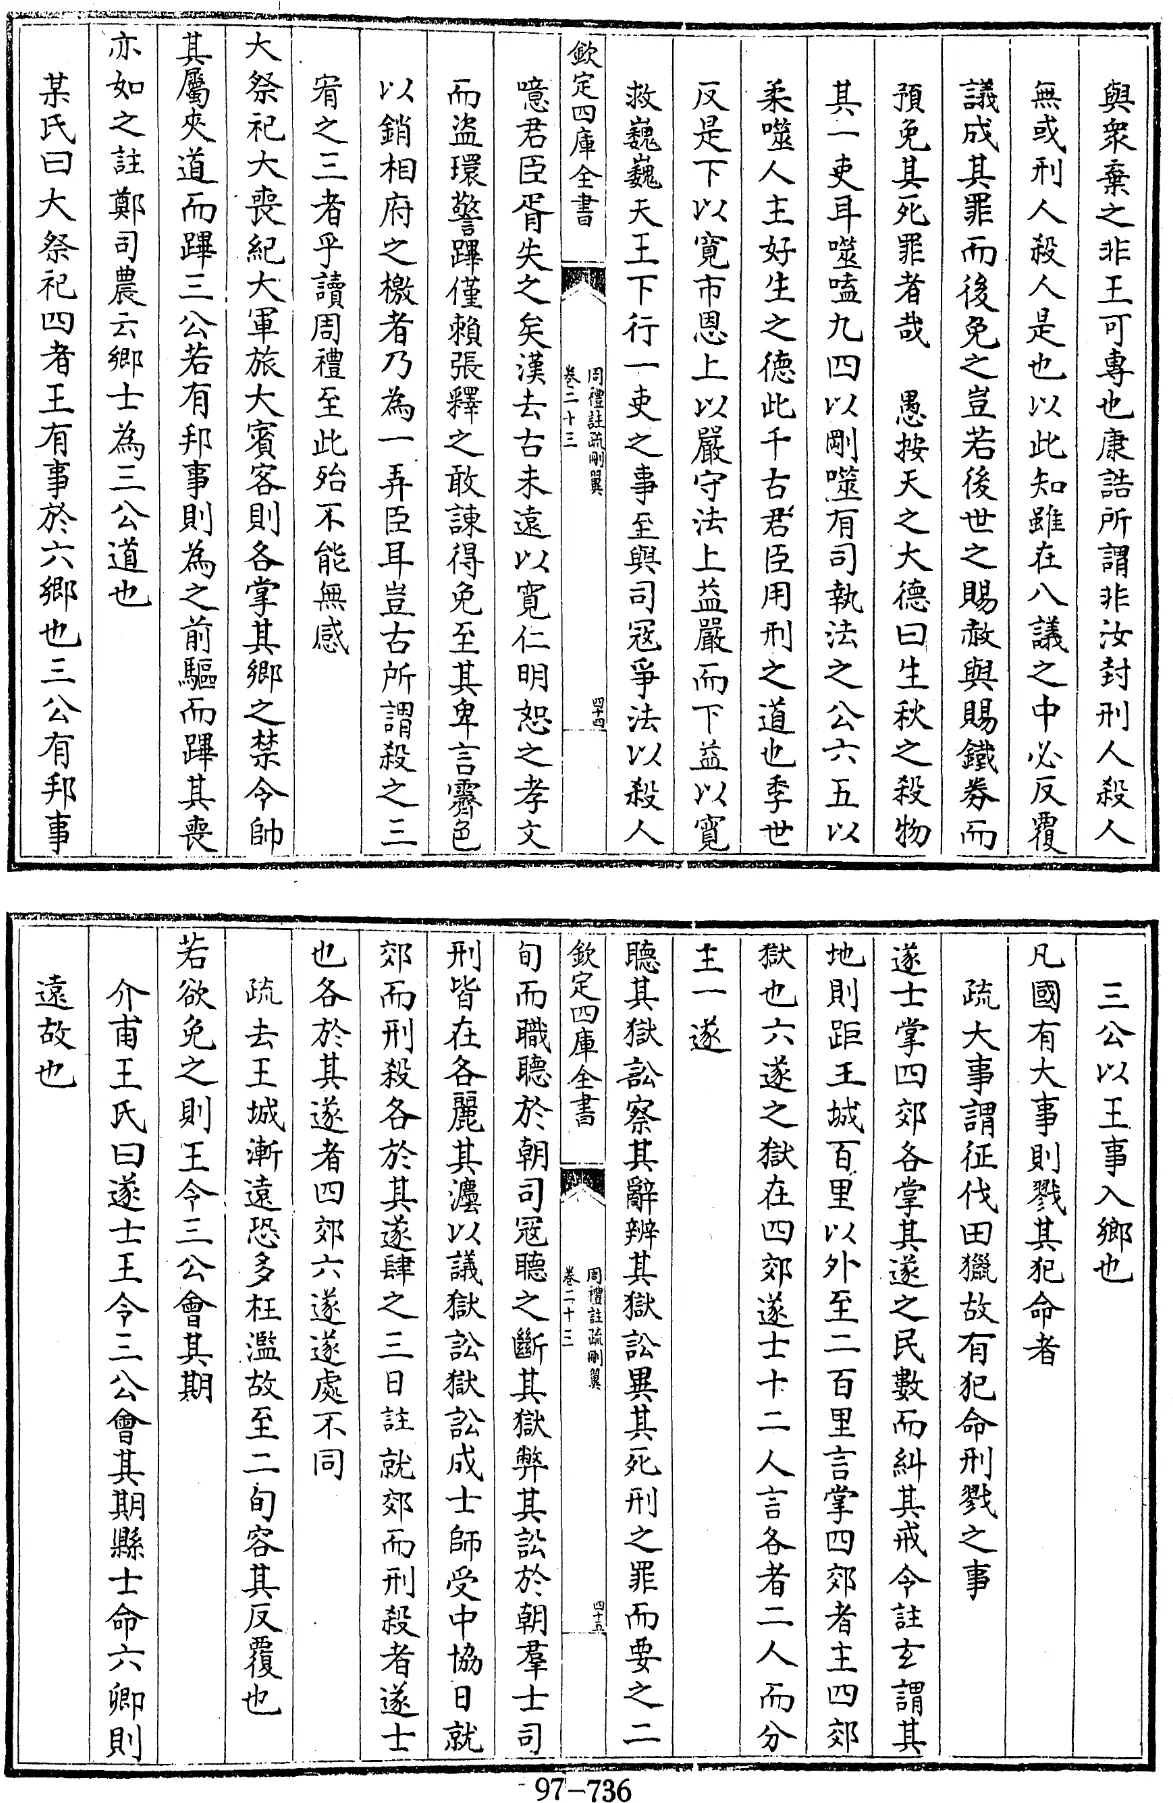 與衆棄之非王可專也康誥所謂非汝封刑人殺人
無或刑人殺人是也以此知雖在八議之中必反覆
議成其罪而後免之豈若後世之賜赦與賜鐵券而
預免其死罪者哉　愚按天之大德曰生秋之殺物
其一吏耳噬嗑九四以剛噬有司執法之公六五以
柔噬人主好生之德此千古君臣用刑之道也季世
反是下以寛市恩上以嚴守法上益嚴而下益以寛
救巍巍天王下行一吏之事至與司冦爭法以殺人
欽定四庫全書
周禮註疏刪翼
卷二十三
四十四
噫君臣胥失之矣漢去古未遠以寛仁明恕之孝文
而盜環警蹕僅賴張釋之敢諫得免至其卑言霽色
以銷相府之檄者乃為一弄臣耳豈古所謂殺之三
宥之三者乎讀周禮至此殆不能無感
大祭祀大喪紀大軍旅大賓客則各掌其鄉之禁令帥
其屬夾道而蹕三公若有邦事則為之前驅而蹕其喪
亦如之註鄭司農云鄉士為三公道也
某氏曰大祭祀四者王有事於六鄉也三公有邦事
三公以王事入鄉也
凡國有大事則戮其犯命者
疏大事謂征伐田獵故有犯命刑戮之事
遂士掌四郊各掌其遂之民數而糾其戒令註玄謂其
地則距王城百里以外至二百里言掌四郊者主四郊
獄也六遂之獄在四郊遂士十二人言各者二人而分
主一遂
聽其獄訟察其辭辨其獄訟異其死刑之罪而要之二
欽定四庫全書
周禮註疏刪翼
卷二十三
四十五
旬而職聽於朝司冦聽之斷其獄弊其訟於朝羣士司
刑皆在各麗其灋以議獄訟獄訟成士師受中協日就
郊而刑殺各於其遂肆之三日註就郊而刑殺者遂士
也各於其遂者四郊六遂遂處不同
疏去王城漸遠恐多枉濫故至二旬容其反覆也
若欲免之則王令三公會其期
介甫王氏曰遂士王令三公會其期縣士命六卿則
遠故也
97-736